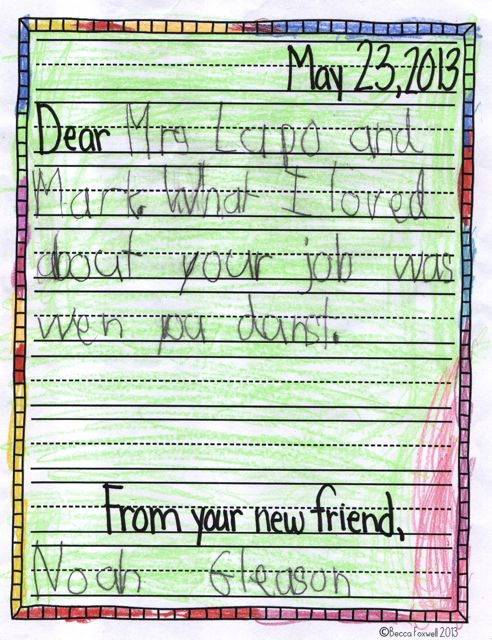 May 23, 2013
Dear Mrs Lupo and
Mark. What I loved
about your job was
wen you danst.
From your new friend,
Noah Gleason
©Becca Foxwell 2013